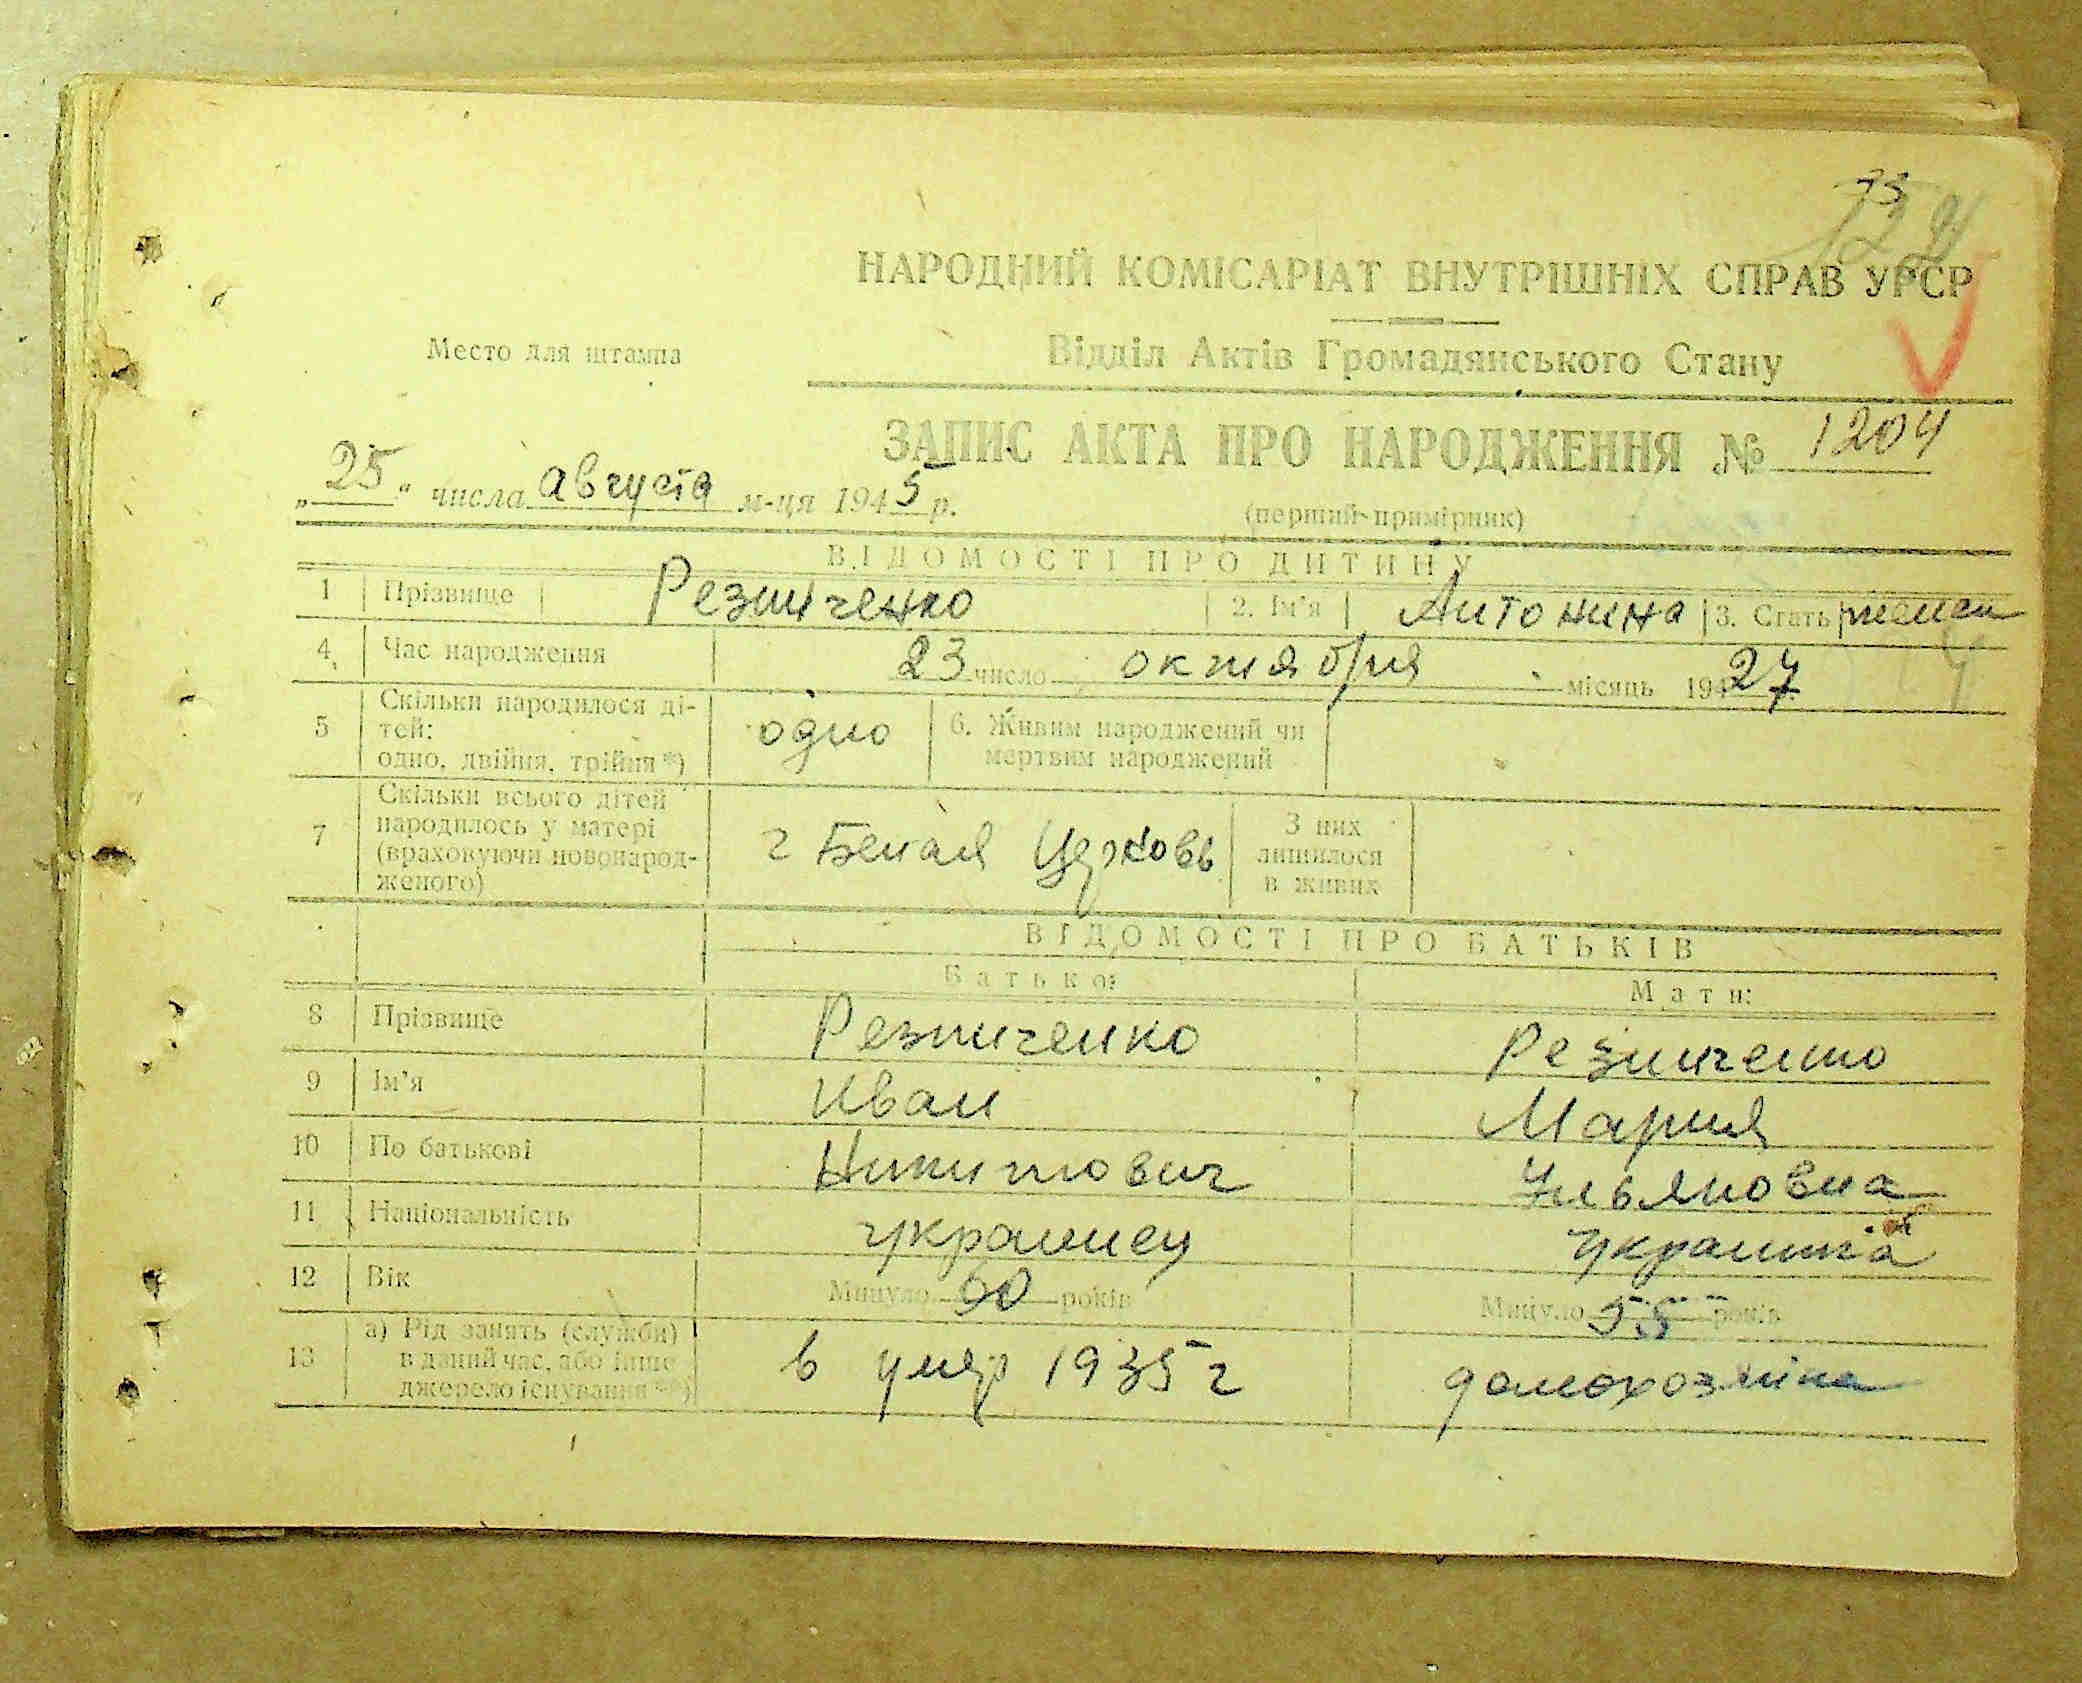 73
НАРОДНИЙ КОМІСАРІАТ ВНУТРІШНІХ СПРАВ УРСР
Место для штампа
Відділ Актів Громадянського Стану
ЗАПИС АКТА ПРО НАРОДЖЕННЯ № 1204
„25“ числа августа м-ця 1945 р.
(перший примірник)
ВІДОМОСТІ ПРО ДИТИНУ
1 Прізвище Резниченко 2. Ім'я Антонина 3. Стать женск
4 Час народження 23 число октября місяць 194 27
5 Скільки народилося ді-
тей:
одно, двійня, трійня *) одно 6. Живим народжений чи
мертвим народжений
7 Скільки всього дітей
народилось у матері
(враховуючи новонарод-
женого) г Белая Церковь З них
лишилося
в живих
ВІДОМОСТІ ПРО БАТЬКІВ
Батько: Мати:
8 Прізвище Резниченко Резниченко
9 Ім'я Иван Мария
10 По батькові Никитович Ульяновна
11 Національність украинец украинка
12 Вік Минуло 60 років Минуло 55 років
13 а) Рід занять (служби)
в даний час, або інше
джерело існування **) в умер 1935 г домохозяйка